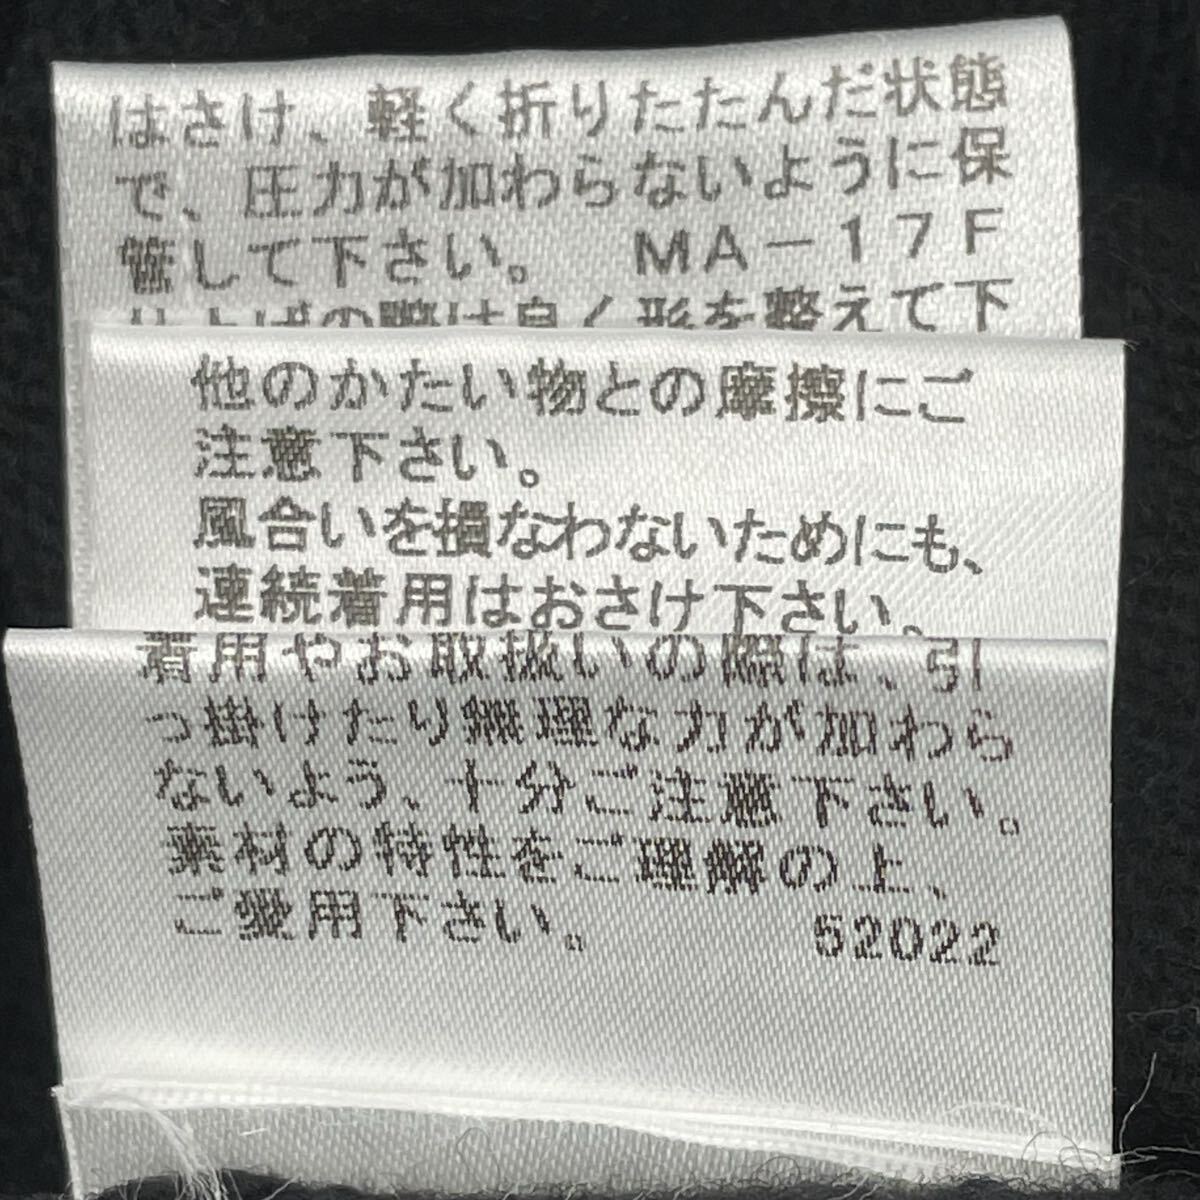 はさけ、軽く折りたたんだ状態
で、圧力が加わらないように保
管して下さい。　ＭＡ－１７Ｆ
仕上げの際は良く形を整えて下
他のかたい物との摩擦にご
注意下さい。
風合いを損なわないためにも、
連続着用はおさけ下さい。
着用やお取扱いの際は、引
っ掛けたり無理な力が加わら
ないよう、十分ご注意下さい。
素材の特性をご理解の上、
ご愛用下さい。　52022